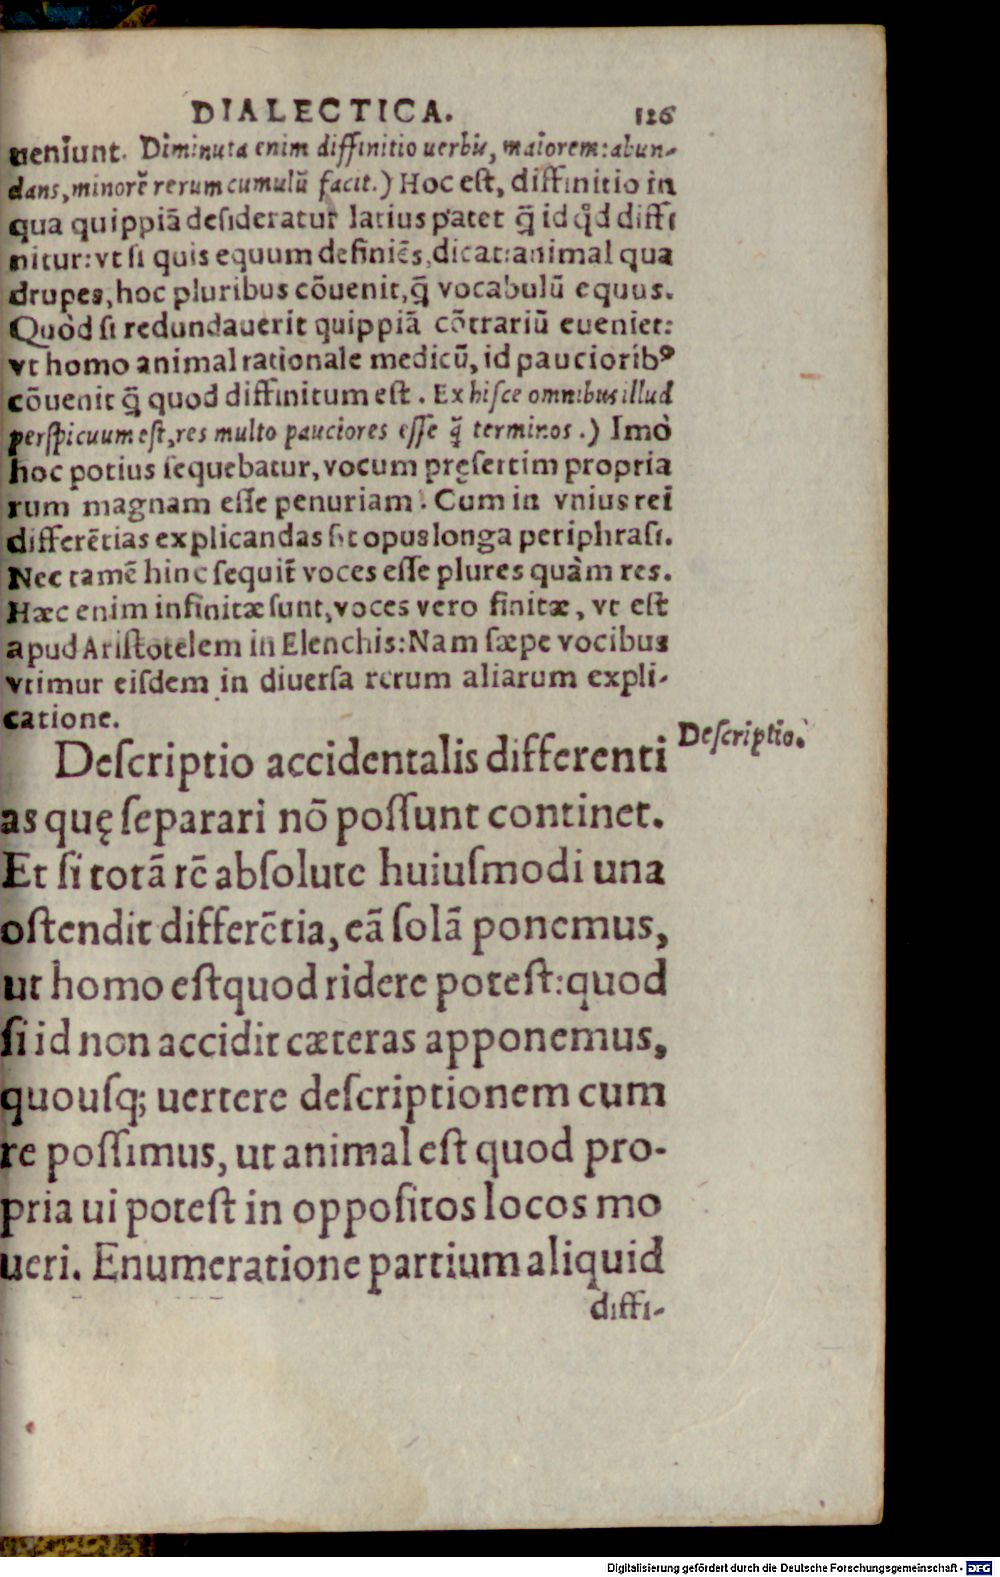 DIALECTICA. 126
ueniunt. Diminuta enim diffinitio uerbis, maiorem: abun-
dans, minorẽ rerum cumulũ facit.) Hoc eſt, diffinitio in
qua quippiã deſideratur latius patet q̃ id qd̾ diffi
nitur: vt ſi quis equum definiẽs, dicat: animal qua
drupes, hoc pluribus cõuenit, q̃ vocabulũ equus.
Quòd ſi redundauerit quippiã cõtrariũ eueniet:
vt homo animal rationale medicũ, id paucioribꝰ
cõuenit q̃ quod diffinitum eſt. Ex hiſce omnibus illud
perſpicuum eſt, res multo pauciores eſſe q̃ terminos.) Imò
hoc potius ſequebatur, vocum pręſertim propria
rum magnam eſſe penuriam. Cum in vnius rei
differẽtias explicandas ſit opus longa periphraſi.
Nec tamẽ hinc ſequit̃ voces eſſe plures quàm res.
Hæc enim infinitæ ſunt, voces vero finitæ, vt eſt
apud Ariſtotelem in Elenchis: Nam ſæpe vocibus
vtimur eiſdem in diuerſa rerum aliarum expli-
catione.
Deſcriptio.
Deſcriptio accidentalis differenti
as quę ſeparari nõ poſſunt continet.
Et ſi totã rẽ abſolute huiuſmodi una
oſtendit differẽtia, eã ſolã ponemus,
ut homo eſt quod ridere poteſt: quod
ſi id non accidit cæteras apponemus,
quouſq; uertere deſcriptionem cum
re poſſimus, ut animal eſt quod pro-
pria ui poteſt in oppoſitos locos mo
ueri. Enumeratione partium aliquid
diffi-
Digitalisierung gefördert durch die Deutsche Forschungsgemeinschaft - DFG